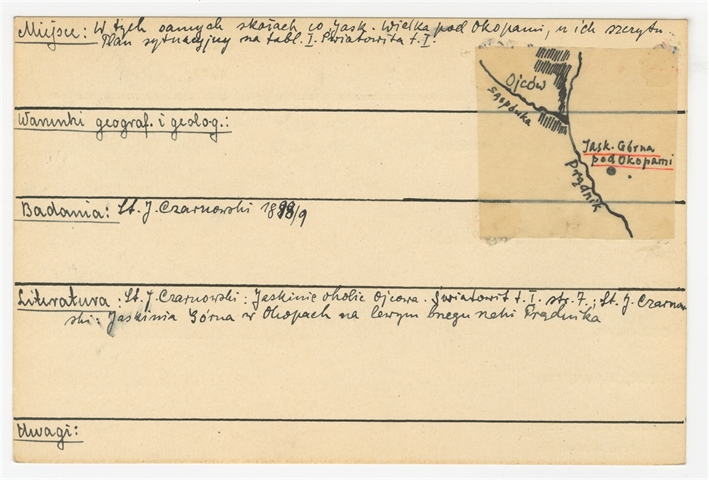 Miejsce: W tych samych skałach co Jask. Wielka pod Okopami, u ich szczytu.
Plan sytuacyjny na tabl. I. Światowita t. I.
Ojców
Sąspówka
Jask. Górna
pod Okopami
Prądnik
Warunki geograf. i geolog.:
Badania: St. J. Czarnowski 1898/9
Literatura: St. J. Czarnowski: Jaskinie okolic Ojcowa. Światowit t. I. str. 7.; St. J. Czarnow
ski: Jaskinia Górna w Okopach na lewym brzegu rzeki Prądnika
Uwagi: